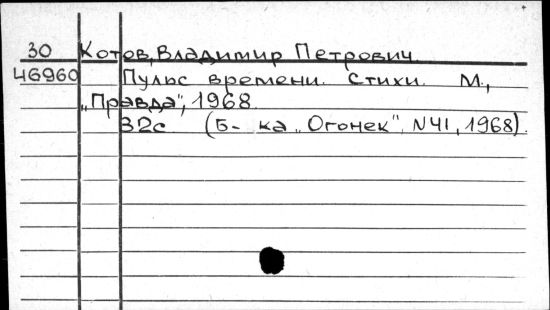 30 Котов, Владимир Петрович.
46960 Пульс времени. Стихи. М.,
„Правда", 1968.
32с (Б-ка „Огонек". N41, 1968).